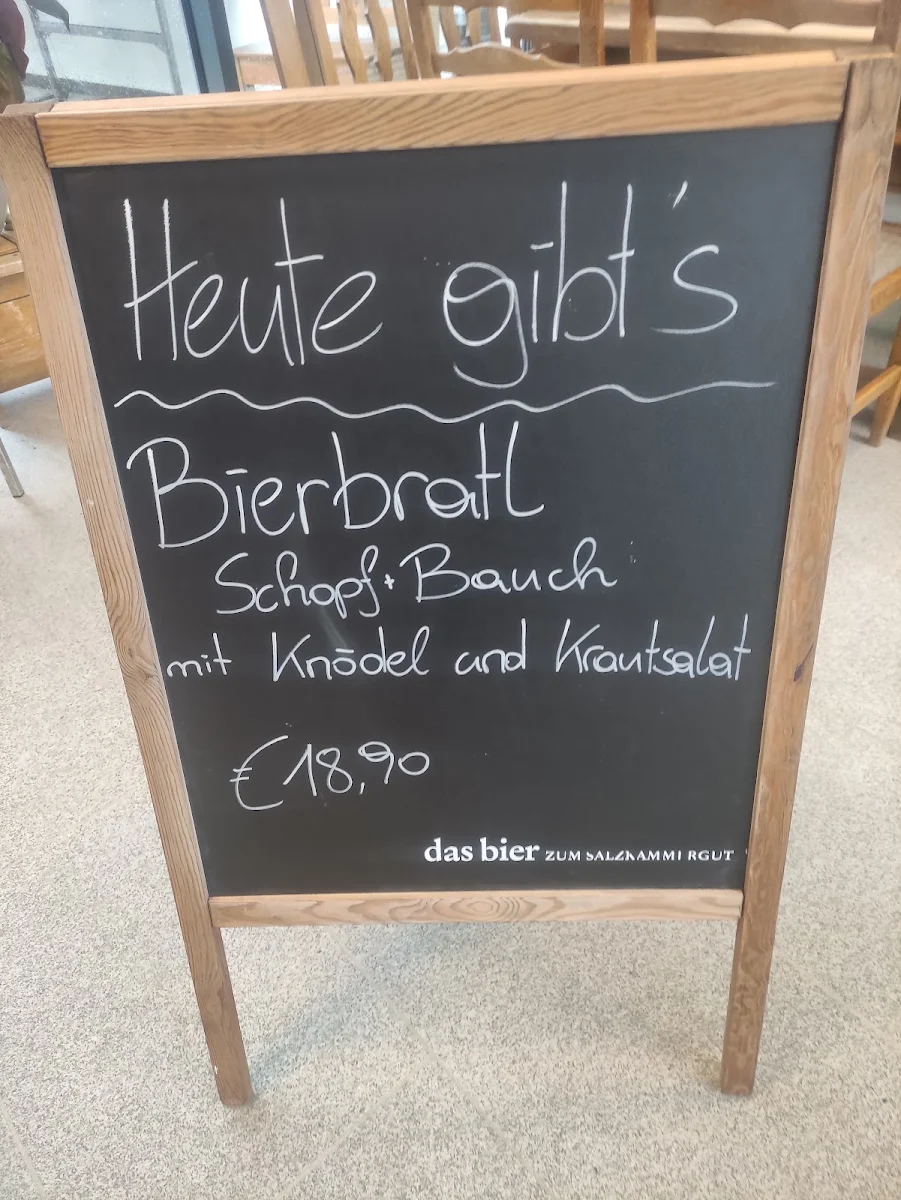 Heute gibt's
Bierbratl
Schopf + Bauch
mit Knödel und Krautsalat
€ 18,90
das bier ZUM SALZKAMMERGUT